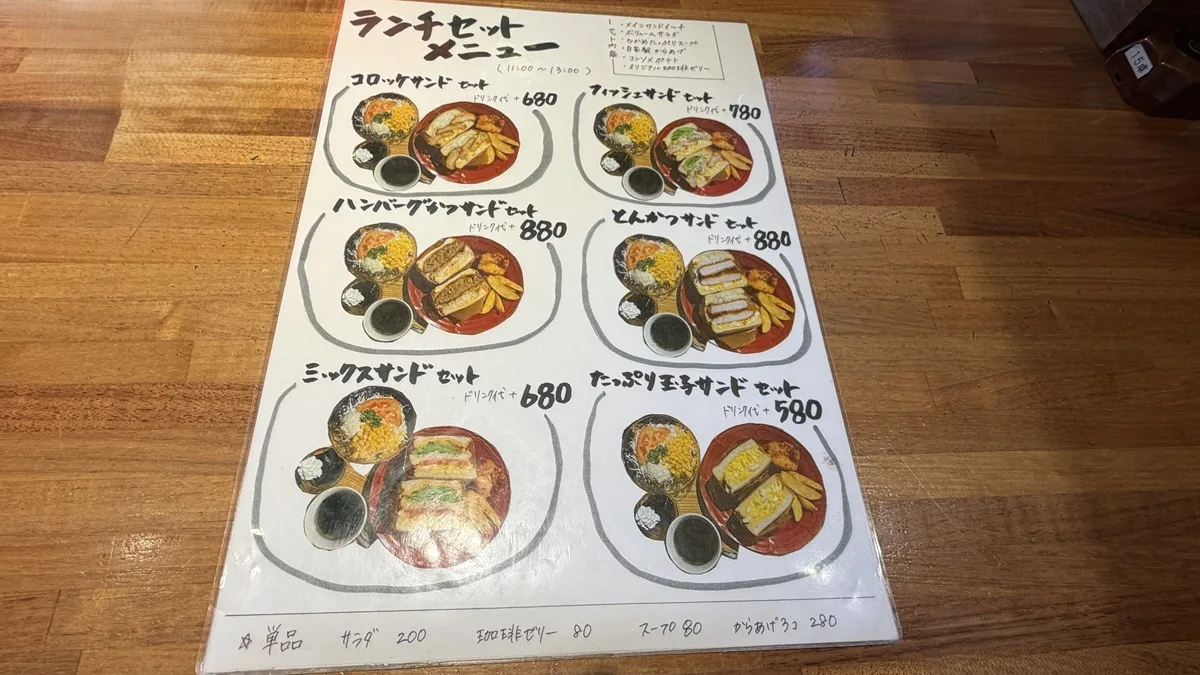 ランチセット
メニュー
(11:00～13:00)
セット内容
・メインサンドイッチ
・ボリュームサラダ
・わかめたっぷりスープ
・自家製からあげ
・コンソメポテト
・オリジナル珈琲ゼリー
コロッケサンド セット
ドリンク代+680
フィッシュサンド セット
ドリンク代+780
ハンバーグかつサンド セット
ドリンク代+880
とんかつサンド セット
ドリンク代+880
ミックスサンド セット
ドリンク代+680
たっぷり玉子サンド セット
ドリンク代+580
☆単品 サラダ 200 珈琲ゼリー 80 スープ 80 からあげ3コ 280